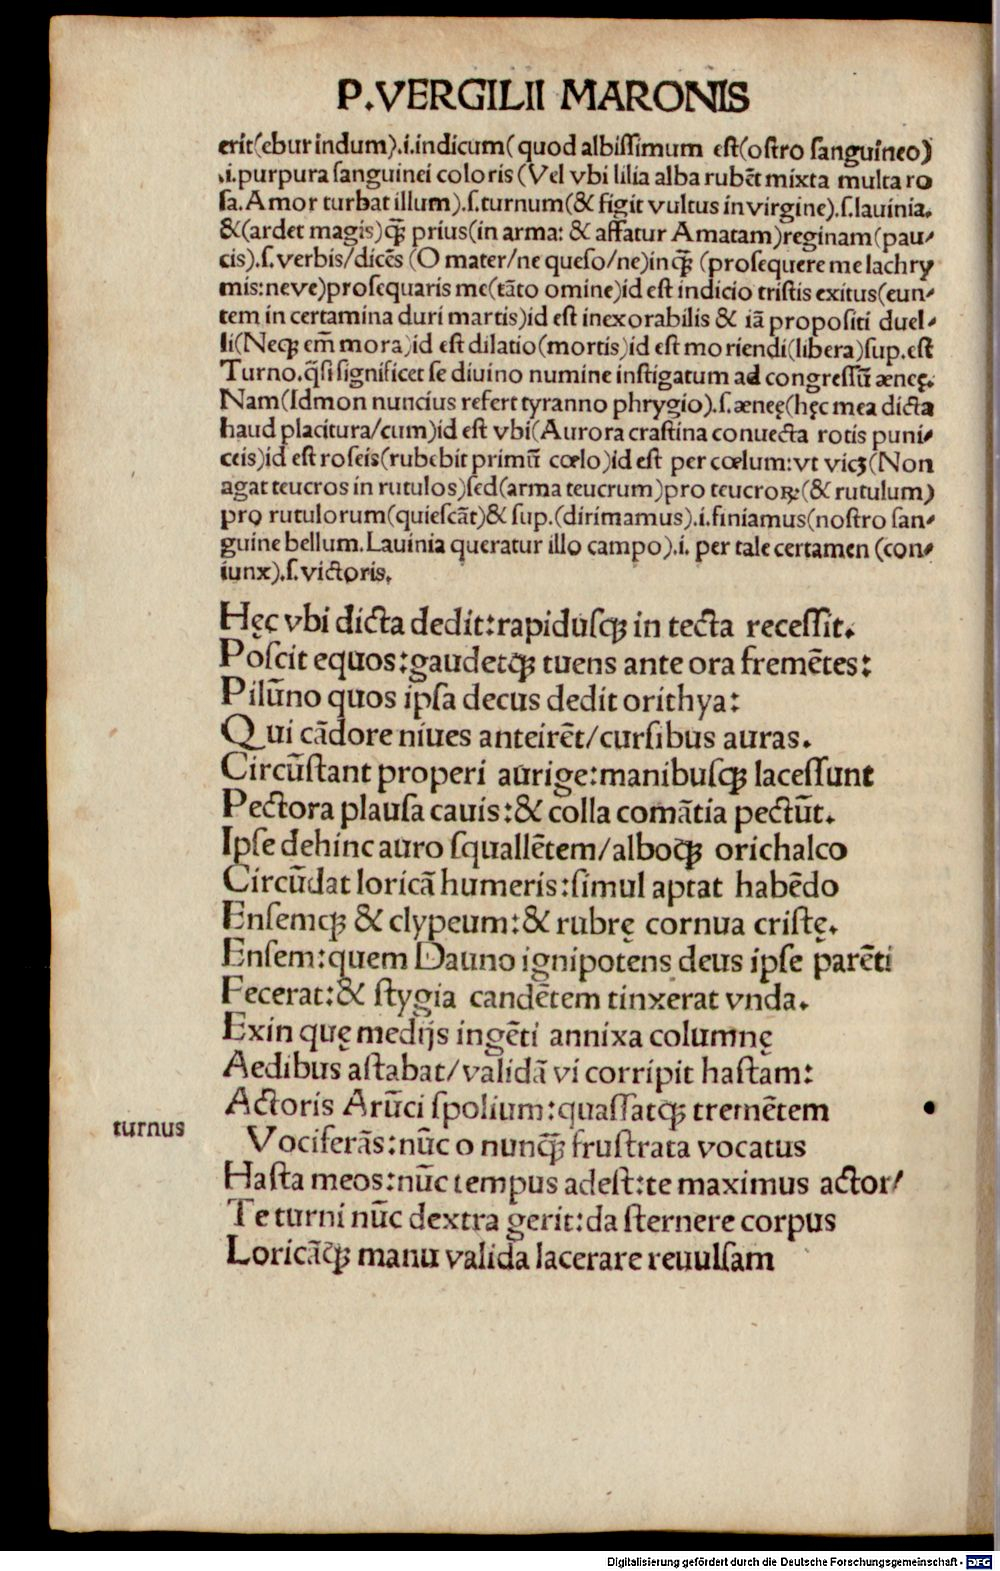 P.VERGILII MARONIS
erit(ebur indum).i.indicum(quod albissimum est(ostro sanguineo)
.i.purpura sanguinei coloris(Vel vbi lilia alba rubēt mixta multa ro
sa.Amor turbat illum).s.turnum(& figit vultus in virgine).s.lauinia.
&(ardet magis)qꝫ̄ prius(in arma: & affatur Amatam)reginam(pau⸗
cis).s.verbis/dicēs(O mater/ne queso/ne)inqꝫ̄ (prosequere me lachry
mis:neve)prosequaris me(tāto omine)id est indicio tristis exitus(eun⸗
tem in certamina duri martis)id est inexorabilis & iā propositi duel⸗
li(Neqꝫ em̄ mora)id est dilatio(mortis)id est moriendi(libera)sup.est
Turno.q̄si significet se diuino numine instigatum ad congressū æneę.
Nam(Idmon nuncius refert tyranno phrygio).s.æneę(hęc mea dicta
haud placitura/cum)id est vbi(Aurora crastina conuecta rotis puni⸗
ceis)id est roseis(rubebit primū cœlo)id est per cœlum:vt vicꝫ(Non
agat teucros in rutulos)sed(arma teucrum)pro teucroꝝ:(& rutulum)
pro rutulorum(quiescāt)& sup.(dirimamus).i.finiamus(nostro san⸗
guine bellum.Lauinia queratur illo campo).i. per tale certamen (con⸗
iunx).s.victoris.
Hęc vbi dicta dedit:rapidusqꝫ in tecta recessit.
Poscit equos:gaudetqꝫ tuens ante ora fremētes:
Pilūno quos ipsa decus dedit orithya:
Qui cādore niues anteirēt/cursibus auras.
Circūstant properi aurige:manibusqꝫ lacessunt
Pectora plausa cauis:& colla comātia pectūt.
Ipse dehinc auro squallētem/alboqꝫ orichalco
Circūdat loricā humeris:simul aptat habēdo
Ensemqꝫ & clypeum:& rubrę cornua cristę.
Ensem:quem Dauno ignipotens deus ipse parēti
Fecerat:& stygia candētem tinxerat vnda.
Exin quę medijs ingēti annixa columnę
Aedibus astabat/validā vi corripit hastam:
Actoris Arūci spolium:quassatqꝫ tremētem
turnus
Vociferās:nūc o nunqꝫ̄ frustrata vocatus
Hasta meos:nūc tempus adest:te maximus actor/
Te turni nūc dextra gerit:da sternere corpus
Loricāqꝫ manu valida lacerare reuulsam
Digitalisierung gefördert durch die Deutsche Forschungsgemeinschaft - DFG